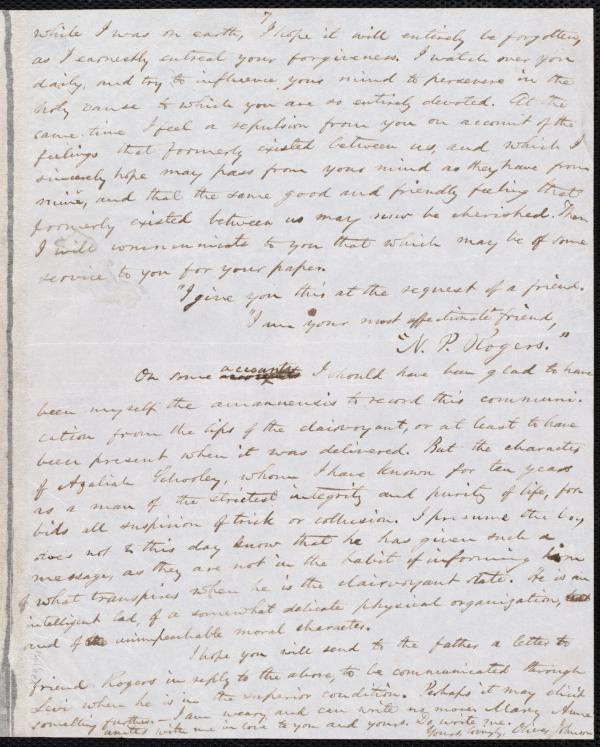 while I was on earth, I hope it will entirely be forgotten,
as I earnestly entreat your forgiveness. I watch over you
daily, and try to influence your mind to persevere in the
holy cause to which you are so entirely devoted. At the
same time I feel a repulsion from you on account of the
feelings that formerly existed between us, and which I
sincerely hope may pass from your mind as they have from
mine, and that the same good and friendly feeling that
formerly existed between us may now be cherished. Then
I will communicate to you that which may be of some
service to you for your paper.
"I give you this at the request of a friend.
"I am your most affectionate friend,
"N. P. Rogers."
On some accounts I should have been glad to have
been myself the amanuensis to record this communi-
cation from the lips of the clairvoyant, or at least to have
been present when it was delivered. But the character
of Azaliah Schooley, whom I have known for ten years
as a man of the strictest integrity and purity of life, for-
bids all suspicion of trick or collusion. I presume the boy
does not to this day know that he has given such a
message, as they are not in the habit of informing him
of what transpires when he is in the clairvoyant state. He is an
intelligent lad, of a somewhat delicate physical organization,
and of unimpeachable moral character.
I hope you will send to the father a letter to
friend Rogers in reply to the above, to be communicated through
Levi when he is in the superior condition. Perhaps it may elicit
something further. — I am weary and can write no more. Mary Anne
unites with me in love to you and yours. Do write me.
Yours lovingly, Oliver Johnson